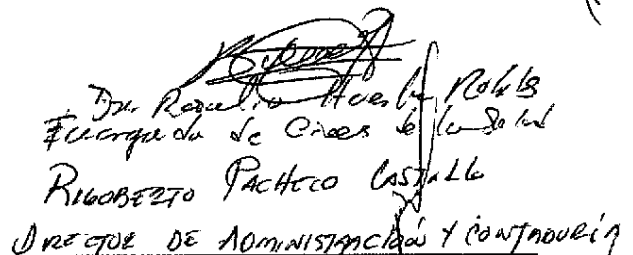 Dr. Rogelio Huerta Robles
Encargado de Cines de la Salud
RIGOBERTO PACHECO CASTILLO
DIRECTOR DE ADMINISTRACIÓN Y CONTADURÍA